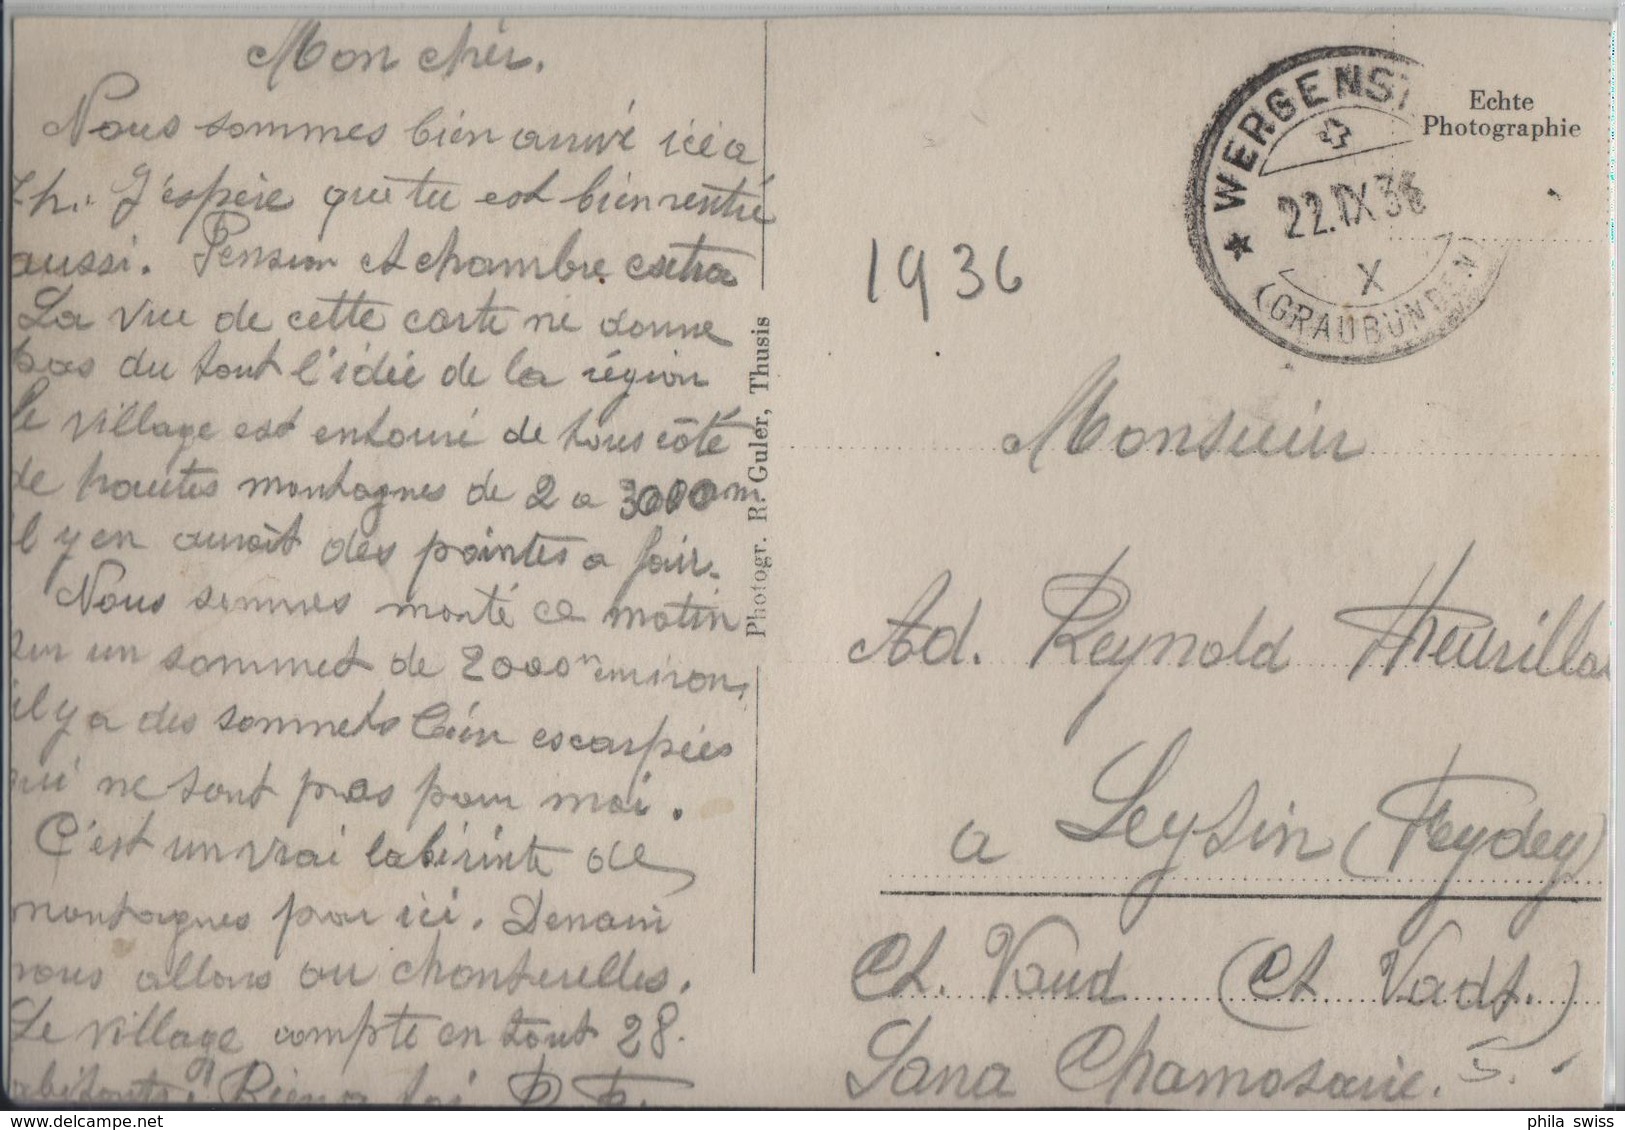 Mon cher.
Nous sommes bien arrivé ici a
7h. J'espère que tu est bien rentré
aussi. Pension et chambre extra
La vue de cette carte ne donne
pas du tout l'idée de la région
le village est entouré de tous côté
de hautes montagnes de 2 a 3000m
il y en aurait des pointes a fair.
Nous sommes monté ce matin
sur un sommet de 2000m environ,
il y a des sommets bien escarpées
qui ne sont pas pour moi.
C'est un vrai labirinte de
montagnes par ici. Demain
nous allons au chanterelles.
Le village compte en tout 28.
abitants.
Photogr. R. Guler, Thusis
WERGENST
22.IX.36
X
(GRAUBÜNDEN)
Echte
Photographie
1936
Monsieur
Ad. Reynold Theurilla
a Leysin (Feydey)
Ct. Vaud (Ct Vadt.)
Sana Chamosaire.
phila swiss